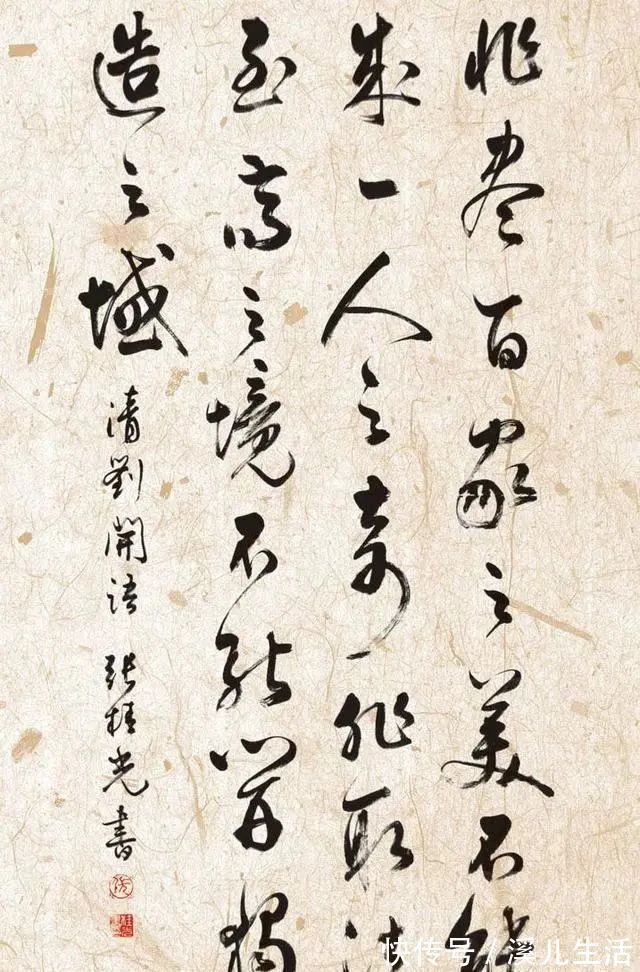 非盡百家之美不能
成一人之奇非取法
至高之境不能開獨
造之域
清劉開語 張桂光書
快传号 / 溪儿生活